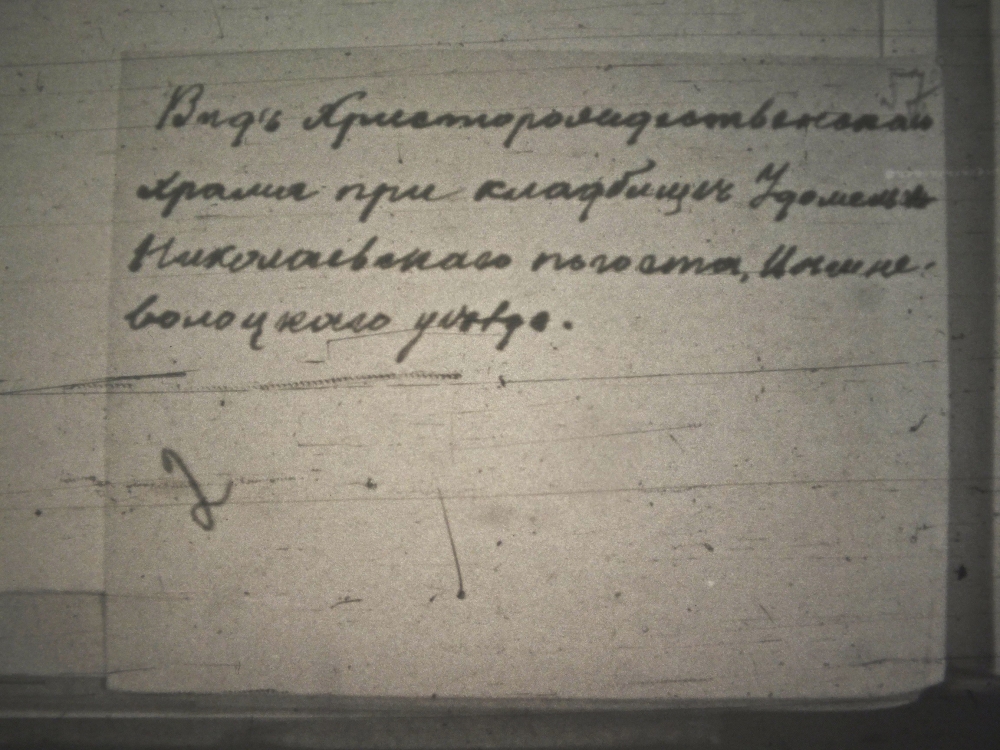 Видъ Христорождественскаго
храма при кладбищѣ Удомельск
Николаевскаго погоста, Вышне-
волоцкаго уѣзда.